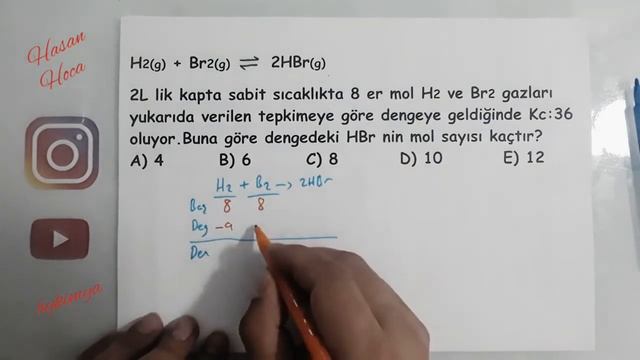 Hasan
Hoca
H2(g) + Br2(g) ⇌ 2HBr(g)
2L lik kapta sabit sıcaklıkta 8 er mol H2 ve Br2 gazları
yukarıda verilen tepkimeye göre dengeye geldiğinde Kc:36
oluyor.Buna göre dengedeki HBr nin mol sayısı kaçtır?
A) 4 B) 6 C) 8 D) 10 E) 12
H2 + Br2 → 2HBr
Baş 8 8
Değ -a
Den